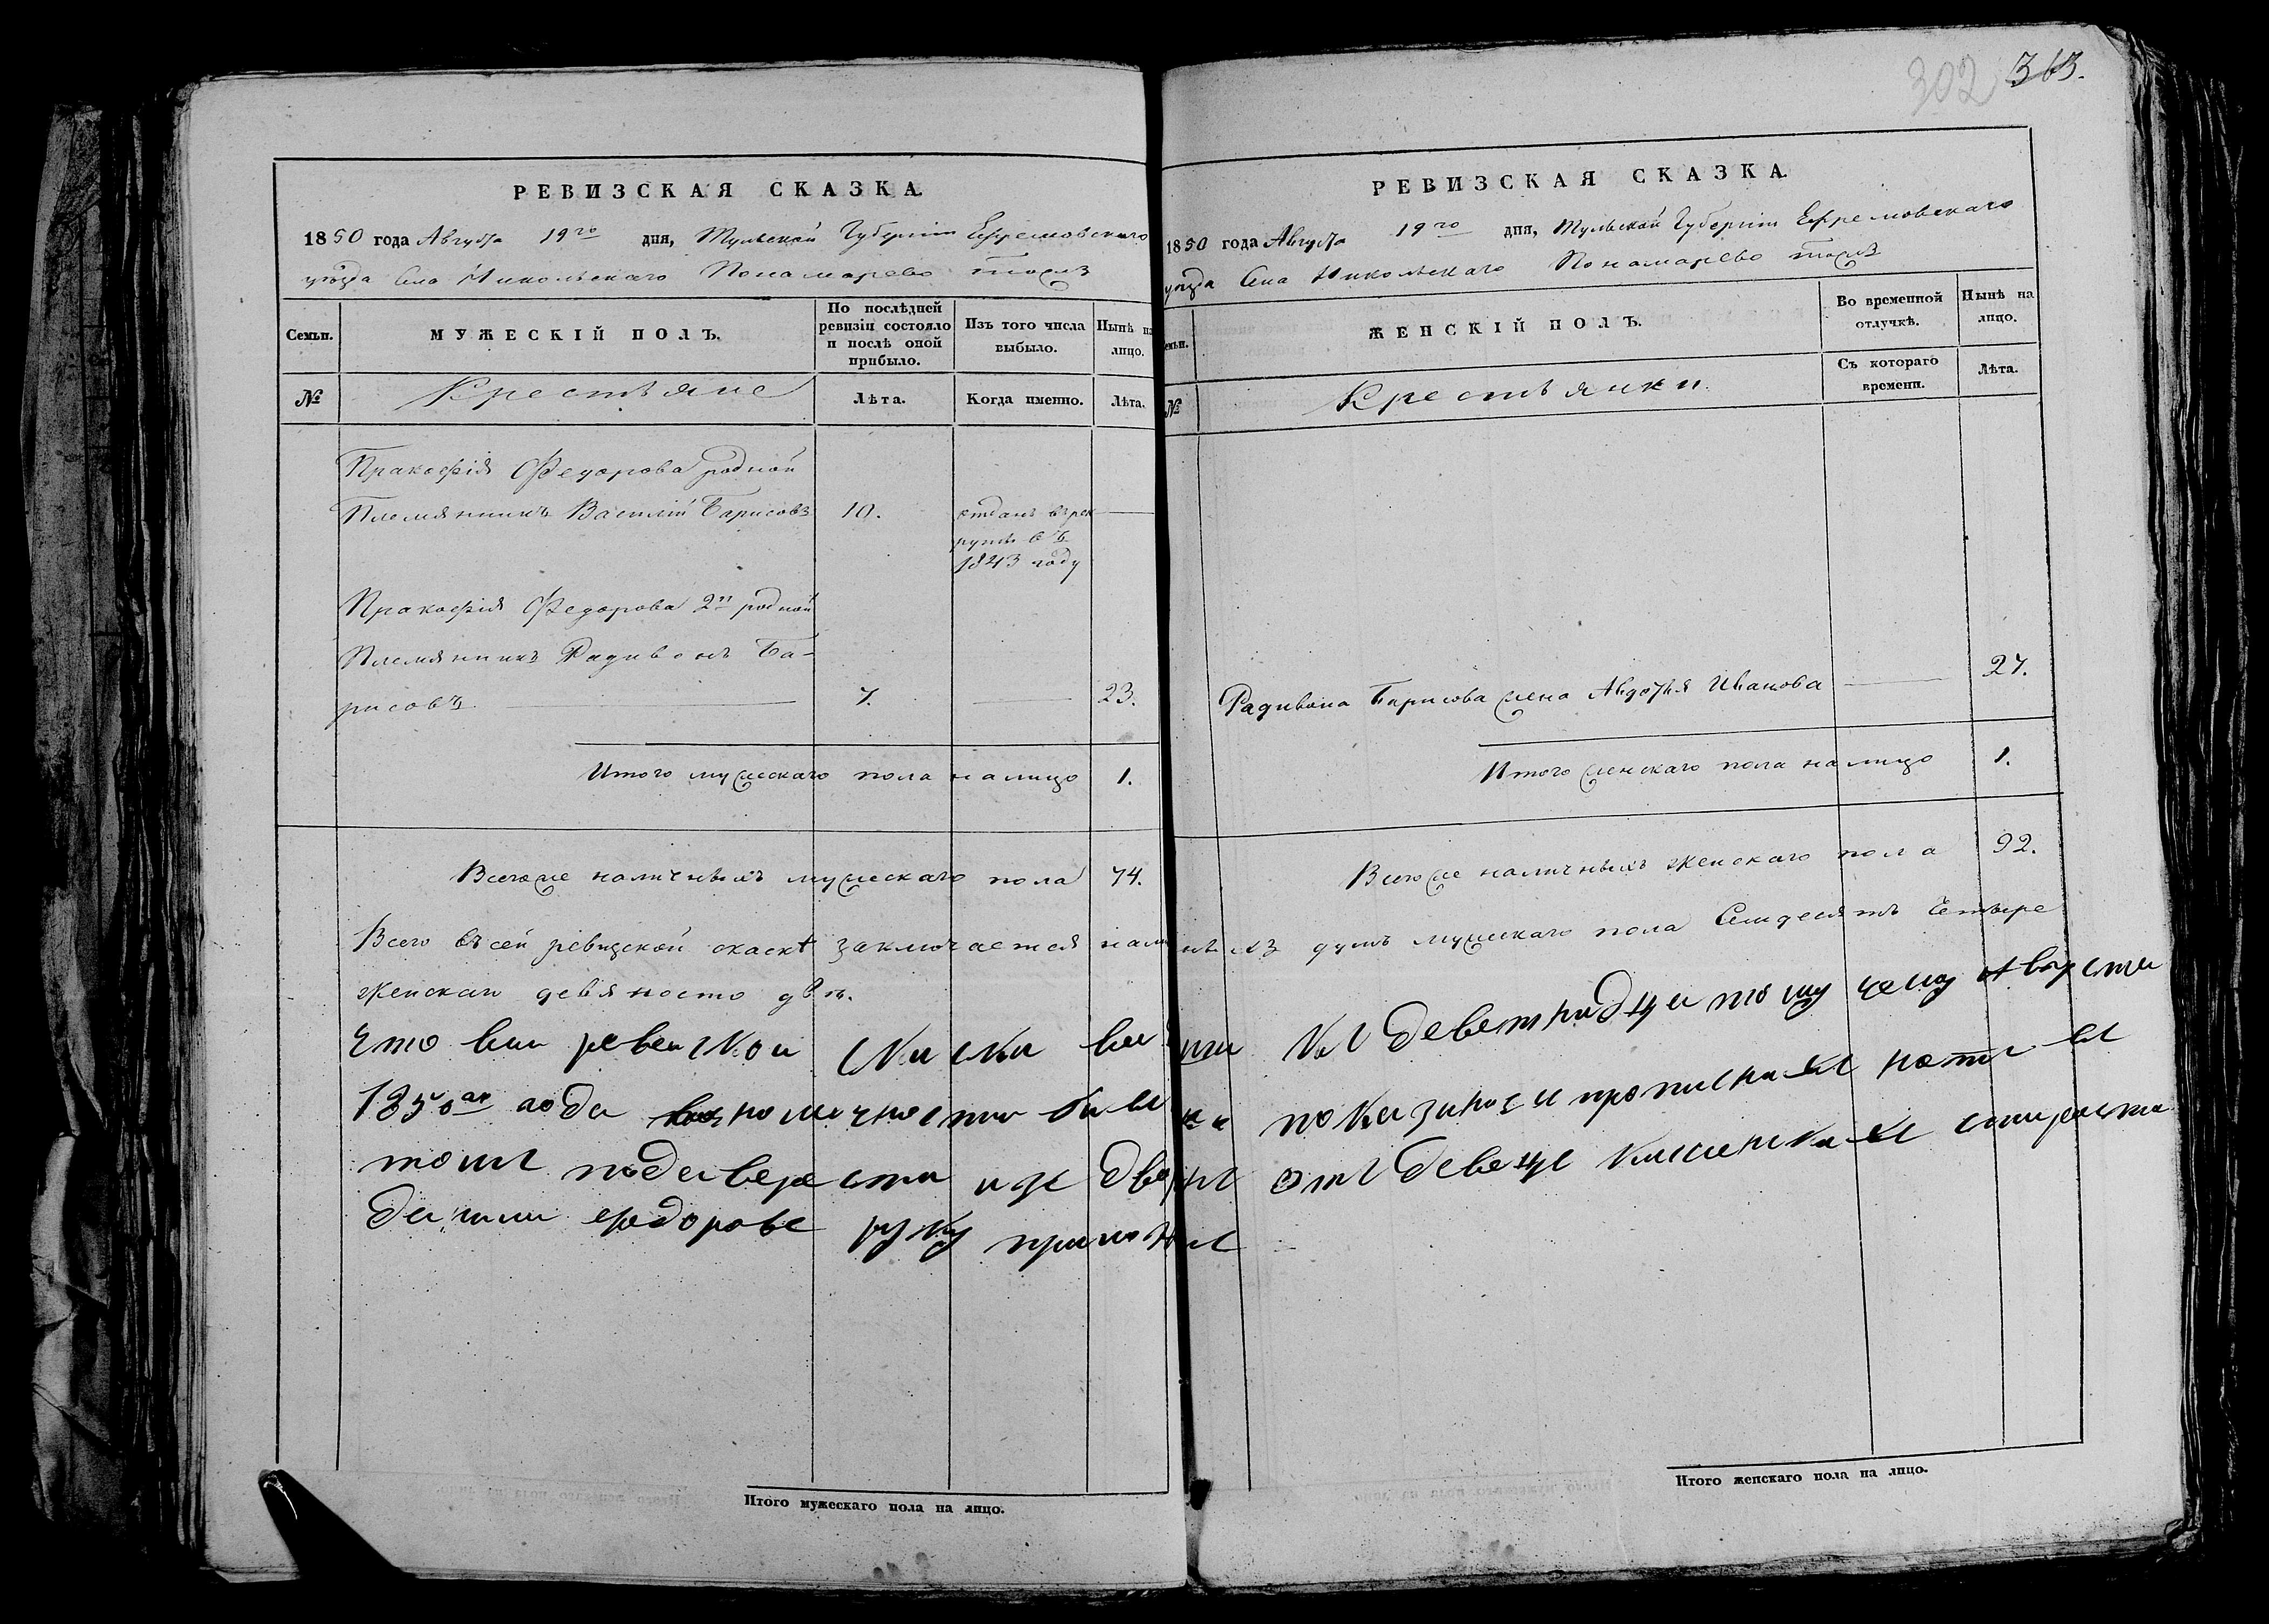 302 363.
РЕВИЗСКАЯ СКАЗКА.
1850 года Августа 19го дня, Тульской Губернии Ефремовского
уѣзда Села Никольскаго Понамарево тожъ
Семьи.
МУЖЕСКІЙ ПОЛЪ.
По послѣдней
ревизіи состояло
и послѣ оной
прибыло.
Изъ того числа
выбыло.
Нынѣ на
лицо.
№
Крестьяне
Лѣта.
Когда именно.
Лѣта.
Пракофія Федорова родной
Племянникъ Василій Барисовъ 10. отданъ в рек
рутъ въ
1843 году
Пракофія Федорова 2й родной
Племянникъ Радивонъ Ба-
рисовъ 7. 23.
Итого мужескаго пола на лицо 1.
Всегоже наличныхъ мужескаго пола 74.
РЕВИЗСКАЯ СКАЗКА.
1850 года Августа 19го дня, Тульской Губернии Ефремовскаго
уѣзда Села Никольскаго Понамарево тожъ
Семьи.
ЖЕНСКІЙ ПОЛЪ.
Во временной
отлучкѣ.
Нынѣ на
лицо.
№
Крестьянки
Съ котораго
времени.
Лѣта.
Радивона Барисова жена Авдотья Иванова 27.
Итого женскаго пола на лицо 1.
Всегоже наличныхъ женскаго пола 92.
Всего въ сей ревизской сказкѣ заключается наличныхъ душъ мужскаго пола Семдесятъ Четыре
женскаго девяносто двѣ.
Что деветнадцатому
1850го года показаной и прописных нет
тош
федорове руку приложил
Итого мужескаго пола на лицо.
Итого женскаго пола на лицо.